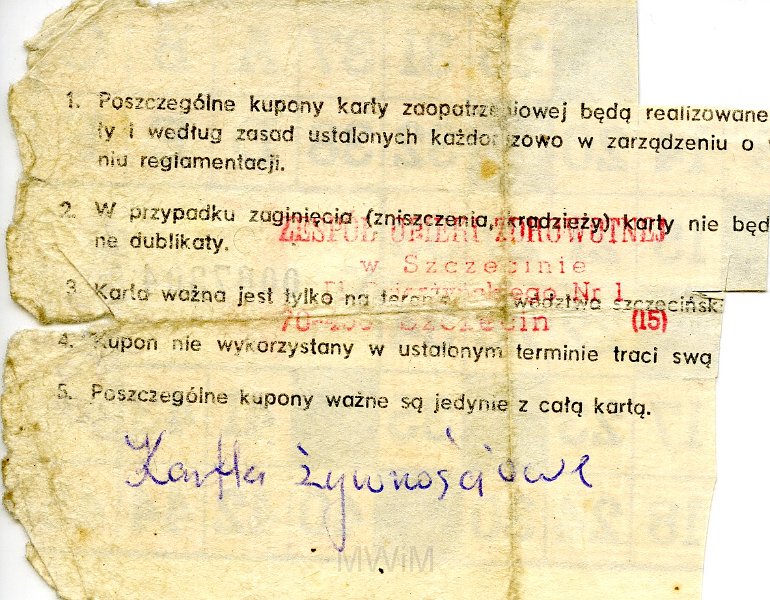 1. Poszczególne kupony karty zaopatrzeniowej będą realizowane
ły i według zasad ustalonych każdorazowo w zarządzeniu o
niu reglamentacji.
2. W przypadku zaginięcia (zniszczenia, kradzieży) karty nie będ
ne dublikaty.
ZESPÓŁ OPIEKI ZDROWOTNEJ
w Szczecinie
3. Karta ważna jest tylko na terenie wództwa szczecińsk
Nr 1
Szczecin (15)
4. Kupon nie wykorzystany w ustalonym terminie traci swą
5. Poszczególne kupony ważne są jedynie z całą kartą.
Kartka żywnościowe
MWiM